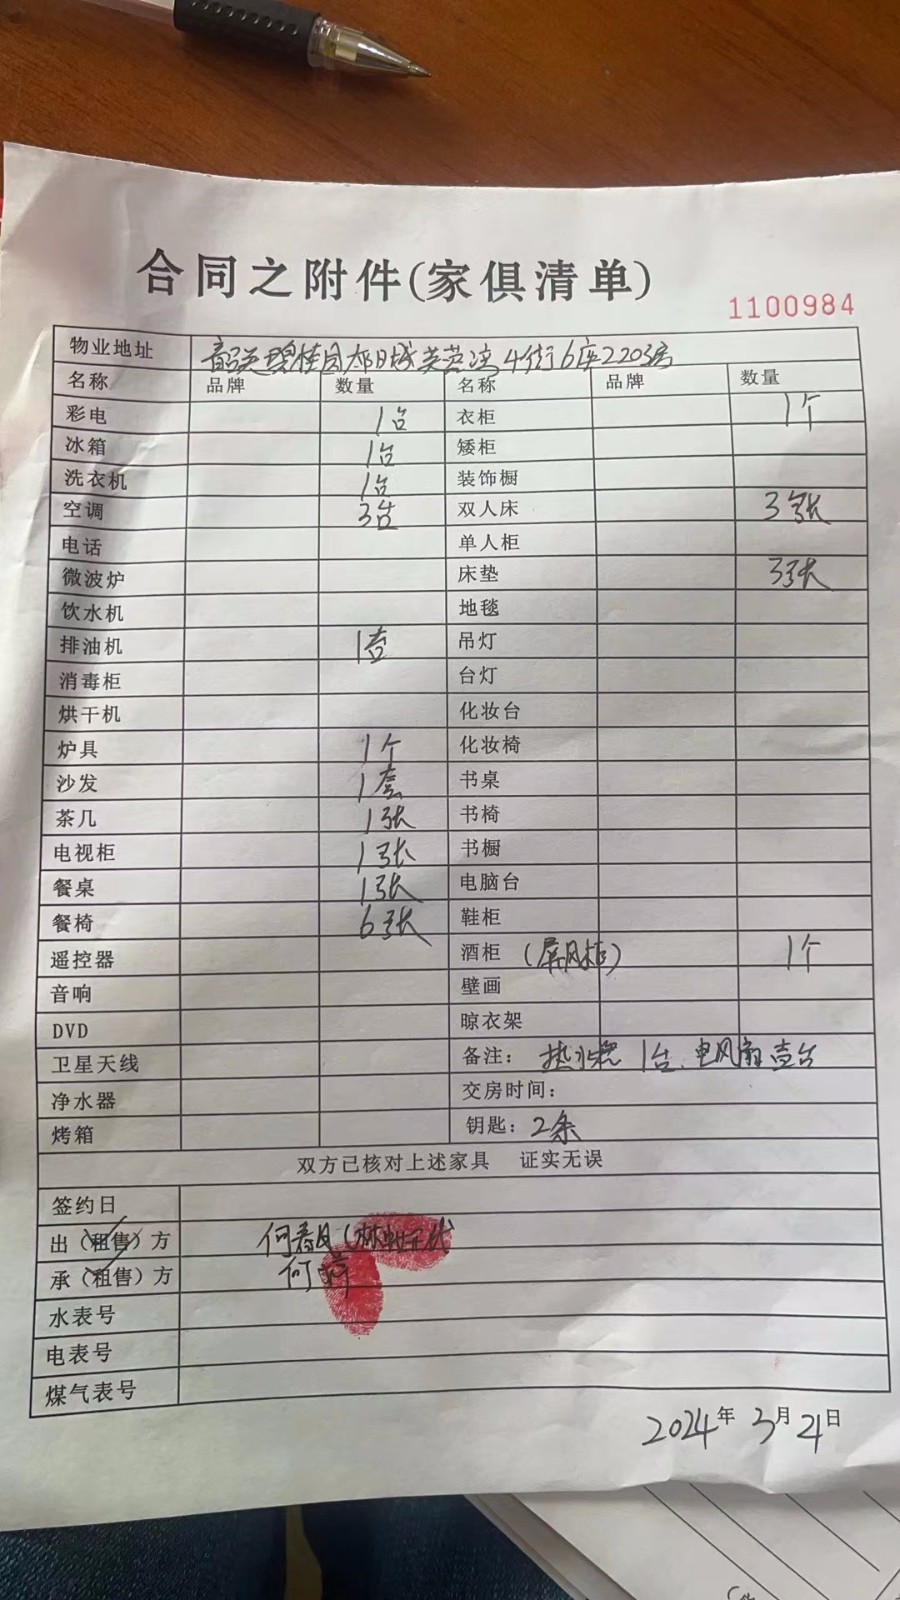 合同之附件(家俱清单)
1100984
物业地址 韶关碧桂园太阳城芙蓉湾4街6座2203房
名称 品牌 数量 名称 品牌 数量
彩电 1台 衣柜 1个
冰箱 1台 矮柜
洗衣机 1台 装饰橱
空调 3台 双人床 3张
电话 单人柜
微波炉 床垫 3张
饮水机 地毯
排油机 1台 吊灯
消毒柜 台灯
烘干机 化妆台
炉具 1个 化妆椅
沙发 1套 书桌
茶几 1张 书椅
电视柜 1张 书橱
餐桌 1张 电脑台
餐椅 6张 鞋柜
遥控器 酒柜 (屏风柜) 1个
音响 壁画
DVD 晾衣架
卫星天线 备注: 热水器 1台、电风扇壹台
净水器 交房时间:
烤箱 钥匙: 2条
双方已核对上述家具 证实无误
签约日
出(租售)方 何春
承(租售)方 何
水表号
电表号
煤气表号
2024年3月21日